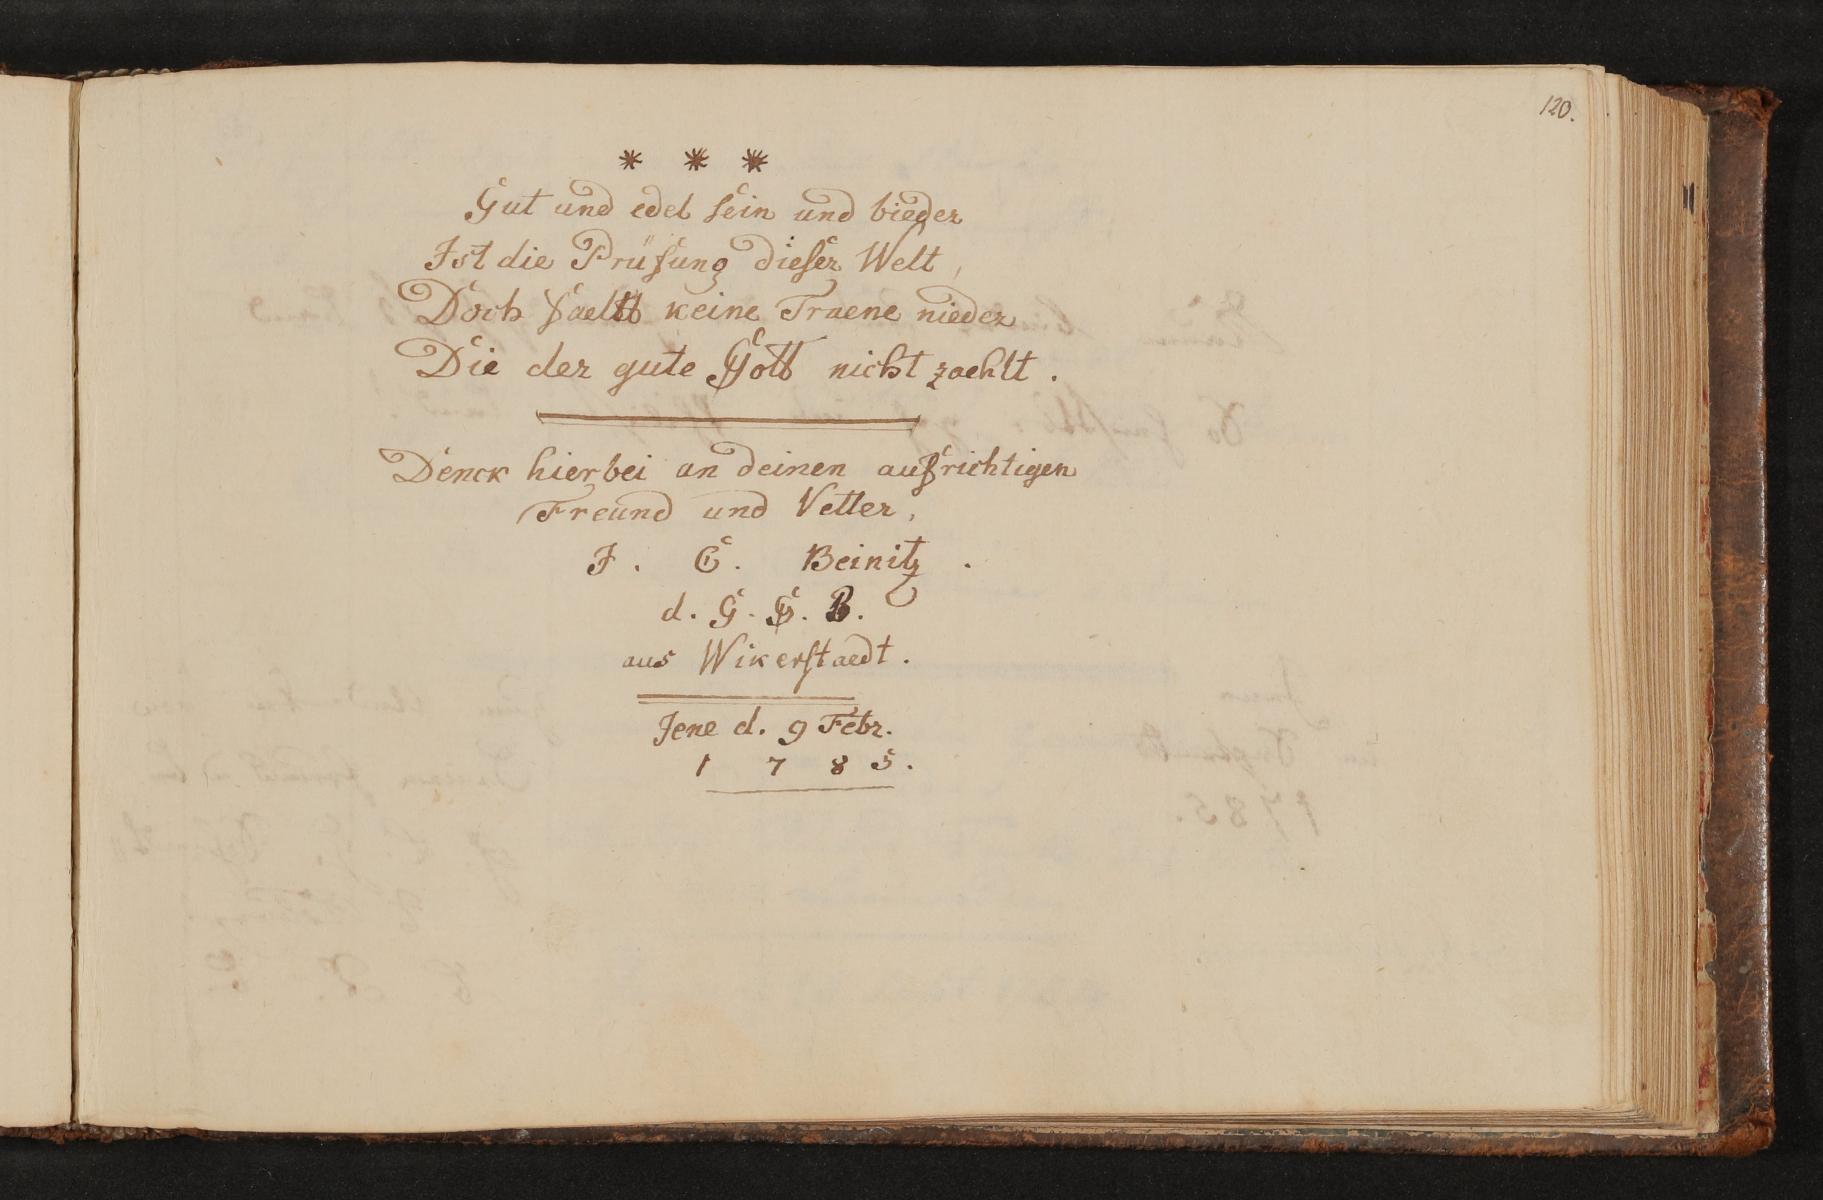 120.
* * *
Gut und edel sein und bieder
Ist die Prüfung dieser Welt,
Doch faellt keine Traene nieder
Die der gute Gott nicht zaehlt.
Denck hierbei an deinen aufrichtigen
Freund und Vetter,
J. C. Beinitz.
d. G. G. B.
aus Wikerstaedt.
Jene d. 9 Febr.
1785.